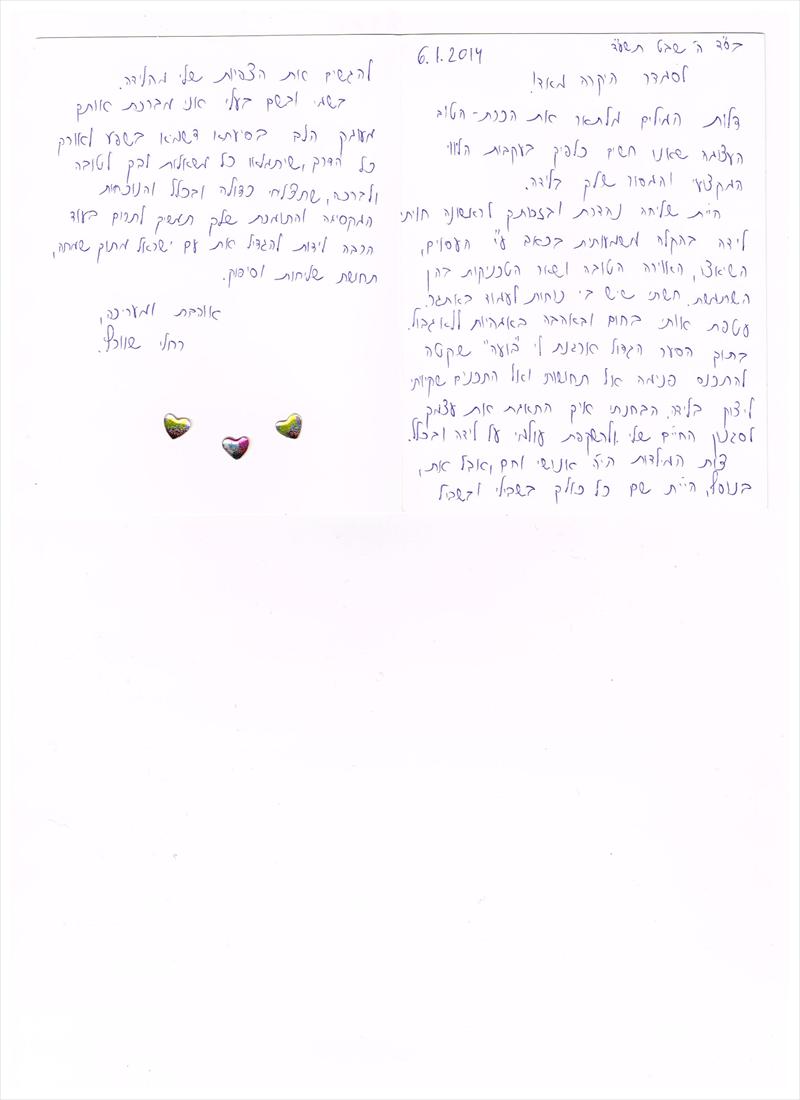 בס"ד ה' שבט תשע"ד 6.1.2014
לסמדר היקרה מאד!
דלות המילים מלתאר את הכרת-הטוב
העצומה שאנו חשים כלפיך בעקבות הליווי
המקצועי והמסור שלך בלידה.
היית שליחה נהדרת ובזכותך לראשונה חויתי
לידה בהקלה משמעותית בכאב ע"י העסוים,
השיאצו, האוירה הטובה ושאר הטכניקות בהן
השתמשת. חשתי שיש בי כוחות לעמוד באתגר.
עטפת אותי בחום ובאהבה באמהיות ללא גבול.
בתוך הסער הגדול ארגנת לי "בועה" שקטה
להתכנס פנימה אל תחושות ואל התכנים שקיותי
ליצוק בלידה. הבחנתי איך התאמת את עצמך
לסגנון החיים שלי ולהשקפת עולמי על לידה ובכלל.
צוות המילדות היה אנושי וחם, אבל את,
בנוסף, היית שם כל כולך בשבילי ובשביל
להגשים את הצפיות שלי מהלידה.
בשמי ובשם בעלי אני מברכת אותך
מעומק הלב בסיעתא דשמיא בשפע לאורך
כל הדרך, שיתמלאו כל משאלות לבך לטובה
ולברכה, שתצליחי כדולה ובכלל והנוכחות
המקסימה והתומכת שלך תמשיך לתרום בעוד
הרבה לידות להגדיל את עם ישראל מתוך שמחה,
תחושת שליחות וסיפוק.
אוהבת ומעריכה,
רחלי שוורץ.